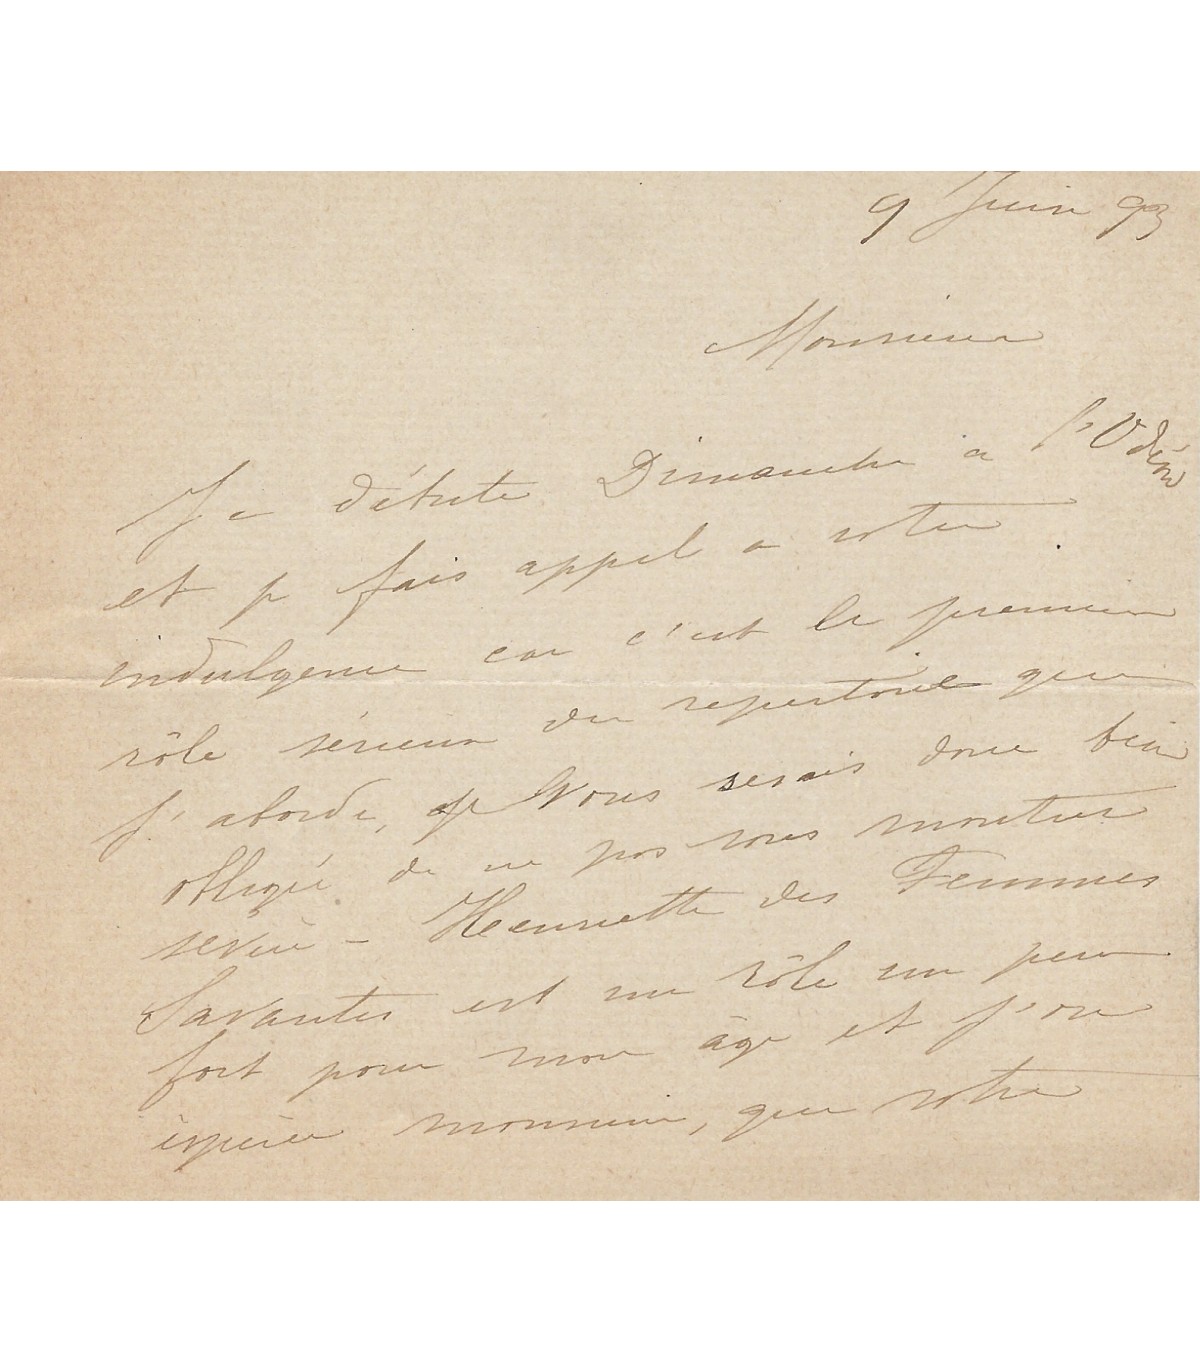 9 Juin 93
Monsieur
Je débute Dimanche à l'Odéon
et je fais appel a votre
indulgence car c'est le premier
rôle sérieux du repertoire que
j'aborde, je vous serais donc bien
obligée de ne pas vous montrer
sévère - Henriette des Femmes
Savantes est un rôle un peu
fort pour mon âge et j'ose
espérer monsieur, que votre